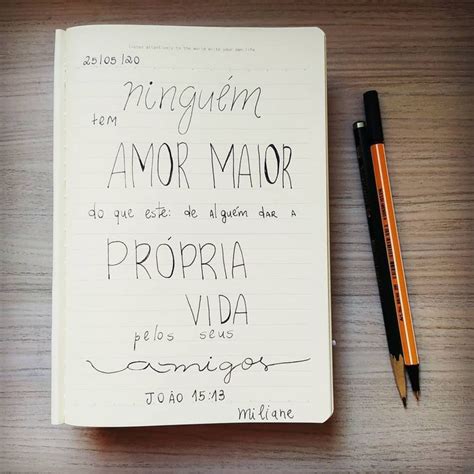 25/05/20
ninguém
tem
AMOR MAIOR
do que este: de alguém dar a
PRÓPRIA
VIDA
pelos seus
amigos
JOÃO 15:13
miliane